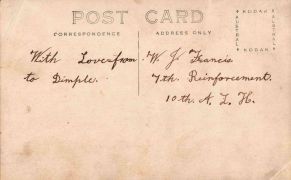 POST CARD
CORRESPONDENCE
ADDRESS ONLY
KODAK
AUSTRALIA
AUSTRALIA
KODAK
With Love from
to Dimple.
W J Francis
7th Reinforcement.
10th A. L. H.